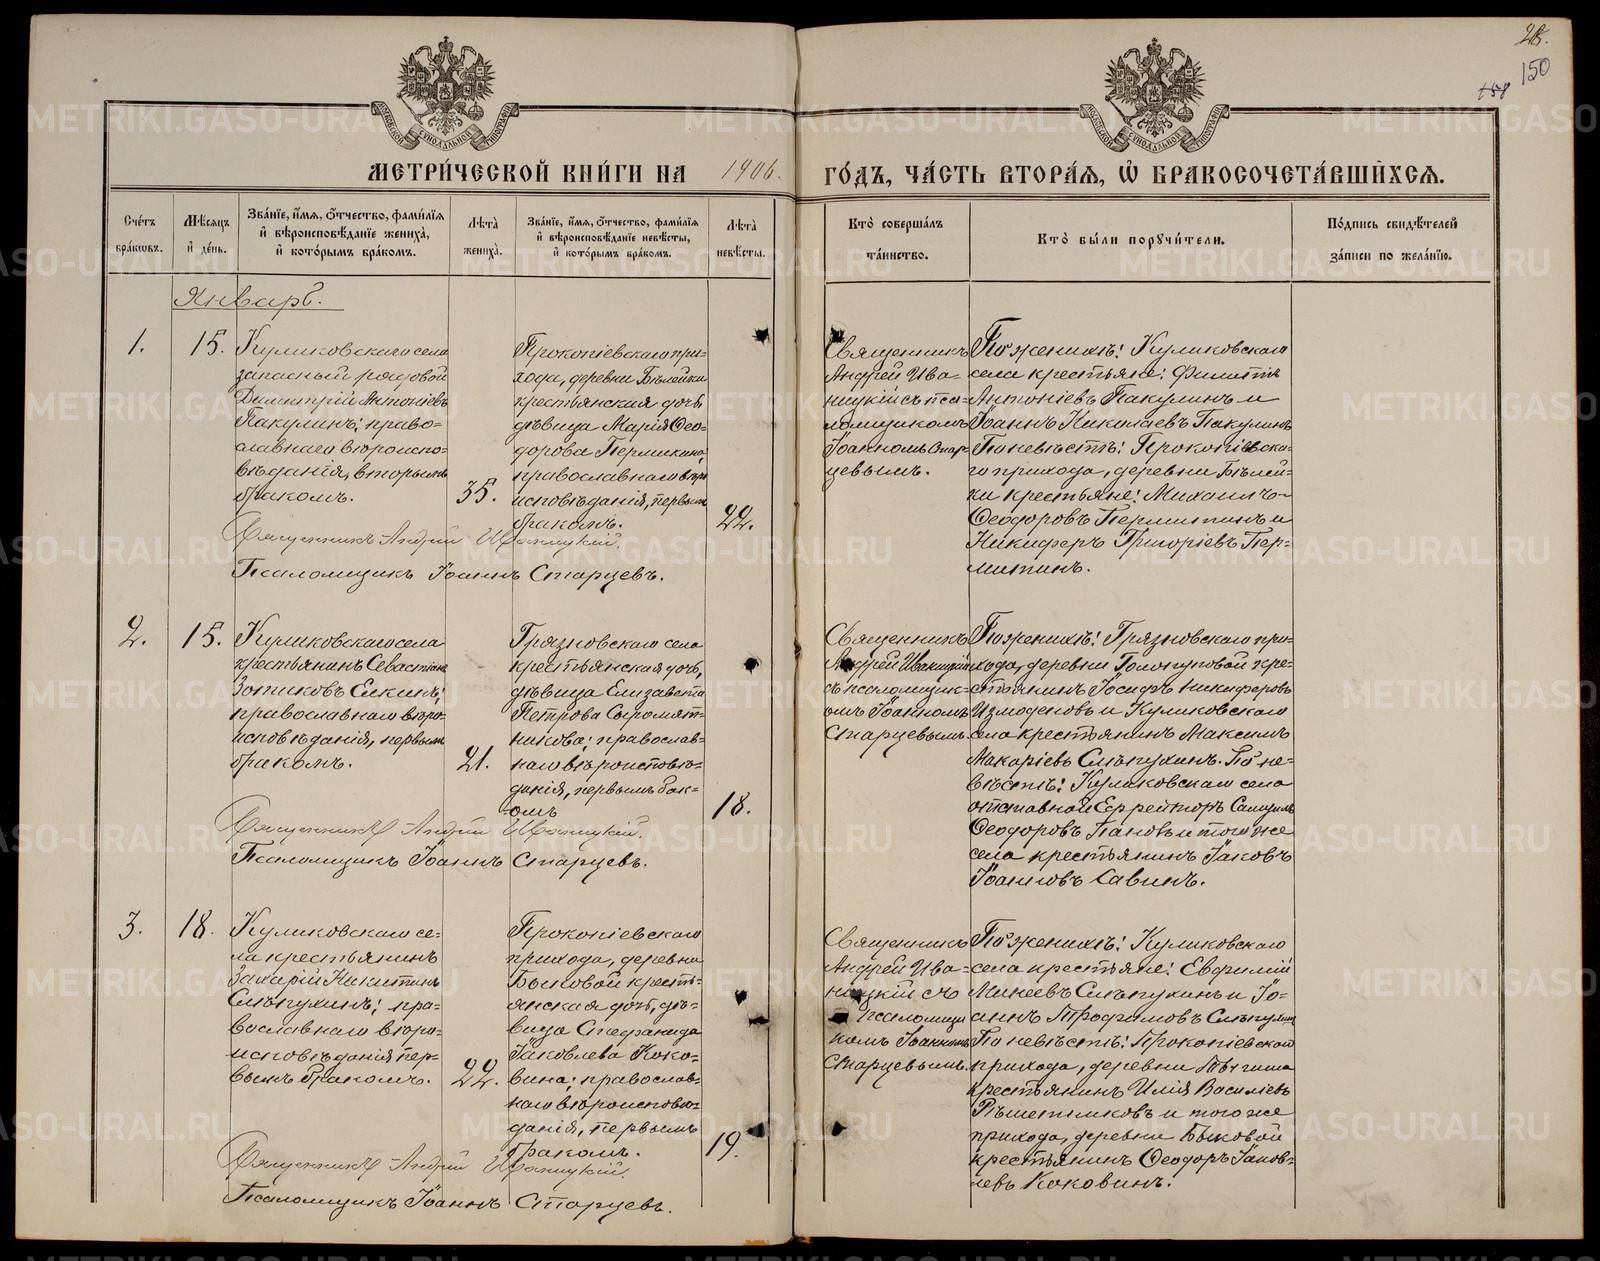 28.
150
158
МЕТРИ́ЧЕСКОЙ КНИ́ГИ НА 1906. ГО́ДЪ, ЧА́СТЬ ВТОРА́Я, Ѽ БРАКОСОЧЕТА́ВШИХСЯ.
Сче́тъ бра́кωвъ.
Мѣ́сяцъ и҆ де́нь.
Зва́нїе, и҆́мя, ѻ҆́тчество, фами́лїя
и҆ вѣроисповѣ́данїе жениха̀,
и҆ кото́рымъ бра́комъ.
Лѣ́та̀ жениха̀.
Зва́нїе, и҆́мя, ѻ҆́тчество, фами́лїя
и҆ вѣроисповѣ́данїе невѣ́сты,
и҆ кото́рымъ бра́комъ.
Лѣ́та̀ невѣ́сты.
Кто̀ соверша́лъ
та́инство.
Кто̀ бы́ли порꙋчи́тели.
По́дпись свидѣ́телей
за́писи по жела́нїю.
Январь.
1.
15.
Куликовскаго села
запасный рядовой
Димитрій Антоніевъ
Пакулинъ; право-
славнаго вѣроиспо-
вѣданія, вторымъ
бракомъ.
35.
Прокопіевскаго при-
хода, деревни Бѣлейки
крестьянская дочь,
дѣвица Марія Ѳео-
дорова Пермикина,
православнаго вѣро
исповѣданія, первым
бракомъ.
22.
Священникъ
Андрей Ива-
ницкій съ пса-
ломщикомъ
Іоанномъ Стар-
цевымъ.
По женихѣ: Куликовскаго
села крестьяне: Филиппъ
Антоніевъ Пакулинъ и
Іоаннъ Николаевъ Пакулинъ
По невѣстѣ: Прокопіевска-
го прихода, деревни Бѣлей-
ки крестьяне: Михаилъ
Ѳеодоровъ Пермитинъ и
Никифоръ Григоріевъ Пер-
митинъ.
Священникъ Андрей Иваницкій.
Псаломщикъ Іоаннъ Старцевъ.
2.
15.
Куликовскаго села
крестьянинъ Севастіанъ
Зотиковъ Елкинъ;
православнаго вѣро-
исповѣданія, первымъ
бракомъ.
21.
Грязновскаго села
крестьянская дочь,
дѣвица Елизавета
Петрова Сыромят-
никова; православ-
наго вѣроисповѣ-
данія, первымъ брак-
омъ
18.
Священникъ
Андрей Иваницкій
съ псаломщик-
омъ Іоанномъ
Старцевымъ.
По женихѣ: Грязновскаго при-
хода, деревни Голопуповой кре-
стьянинъ Іосифъ Никифоровъ
Измоденовъ и Куликовскаго
села крестьянинъ Максимъ
Макаріевъ Слѣпухинъ. По не-
вѣстѣ: Куликовскаго села
отставной Ефрейторъ Самуилъ
Ѳеодоровъ Пановъ и того же
села крестьянинъ Іаковъ
Іоанновъ Савинъ.
Священникъ Андрей Иваницкій.
Псаломщикъ Іоаннъ Старцевъ.
3.
18.
Куликовскаго се-
ла крестьянинъ
Захарій Никитинъ
Слѣпухинъ; пра-
вославнаго вѣро-
исповѣданія пер-
вымъ бракомъ.
22.
Прокопіевскаго
прихода, деревни
Быковой кресть-
янская дочь, дѣ-
вица Стефанида
Іаковлева Коко-
вина; православ-
наго вѣроисповѣ-
данія, первымъ
бракомъ.
19.
Священникъ
Андрей Ива-
ницкій съ
псаломщи
комъ Іоанномъ
Старцевымъ.
По женихѣ: Куликовскаго
села крестьяне: Евфимій
Минеевъ Слѣпухинъ и Іо-
аннъ Трофимовъ Слѣпухинъ
По невѣстѣ: Прокопіевскаго
прихода, деревни
крестьянинъ Илія Васильевъ
Рѣшетниковъ и того же
прихода, деревни Быковой
крестьянинъ Ѳеодоръ Іаков-
левъ Коковинъ.
Священникъ Андрей Иваницкій.
Псаломщикъ Іоаннъ Старцевъ.
METRIKI.GASO-URAL.RU